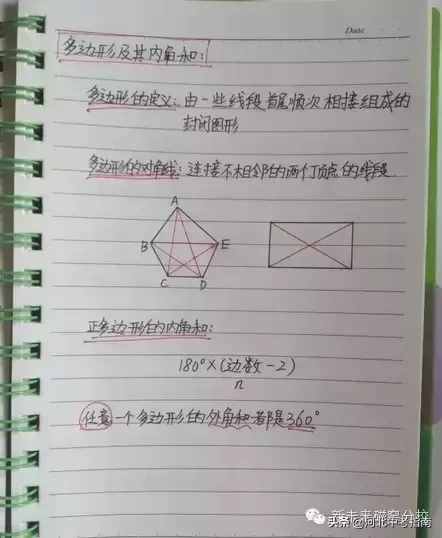 Date
多边形及其内角和:
多边形的定义:由一些线段首尾顺次相接组成的
封闭图形
多边形的对角线:连接不相邻的两个顶点的线段
A
B
E
C
D
正多边形的内角和:
180°×(边数-2)
n
任意一个多边形的外角和都是360°
新未来磁窑分校
头条@河北中考指南